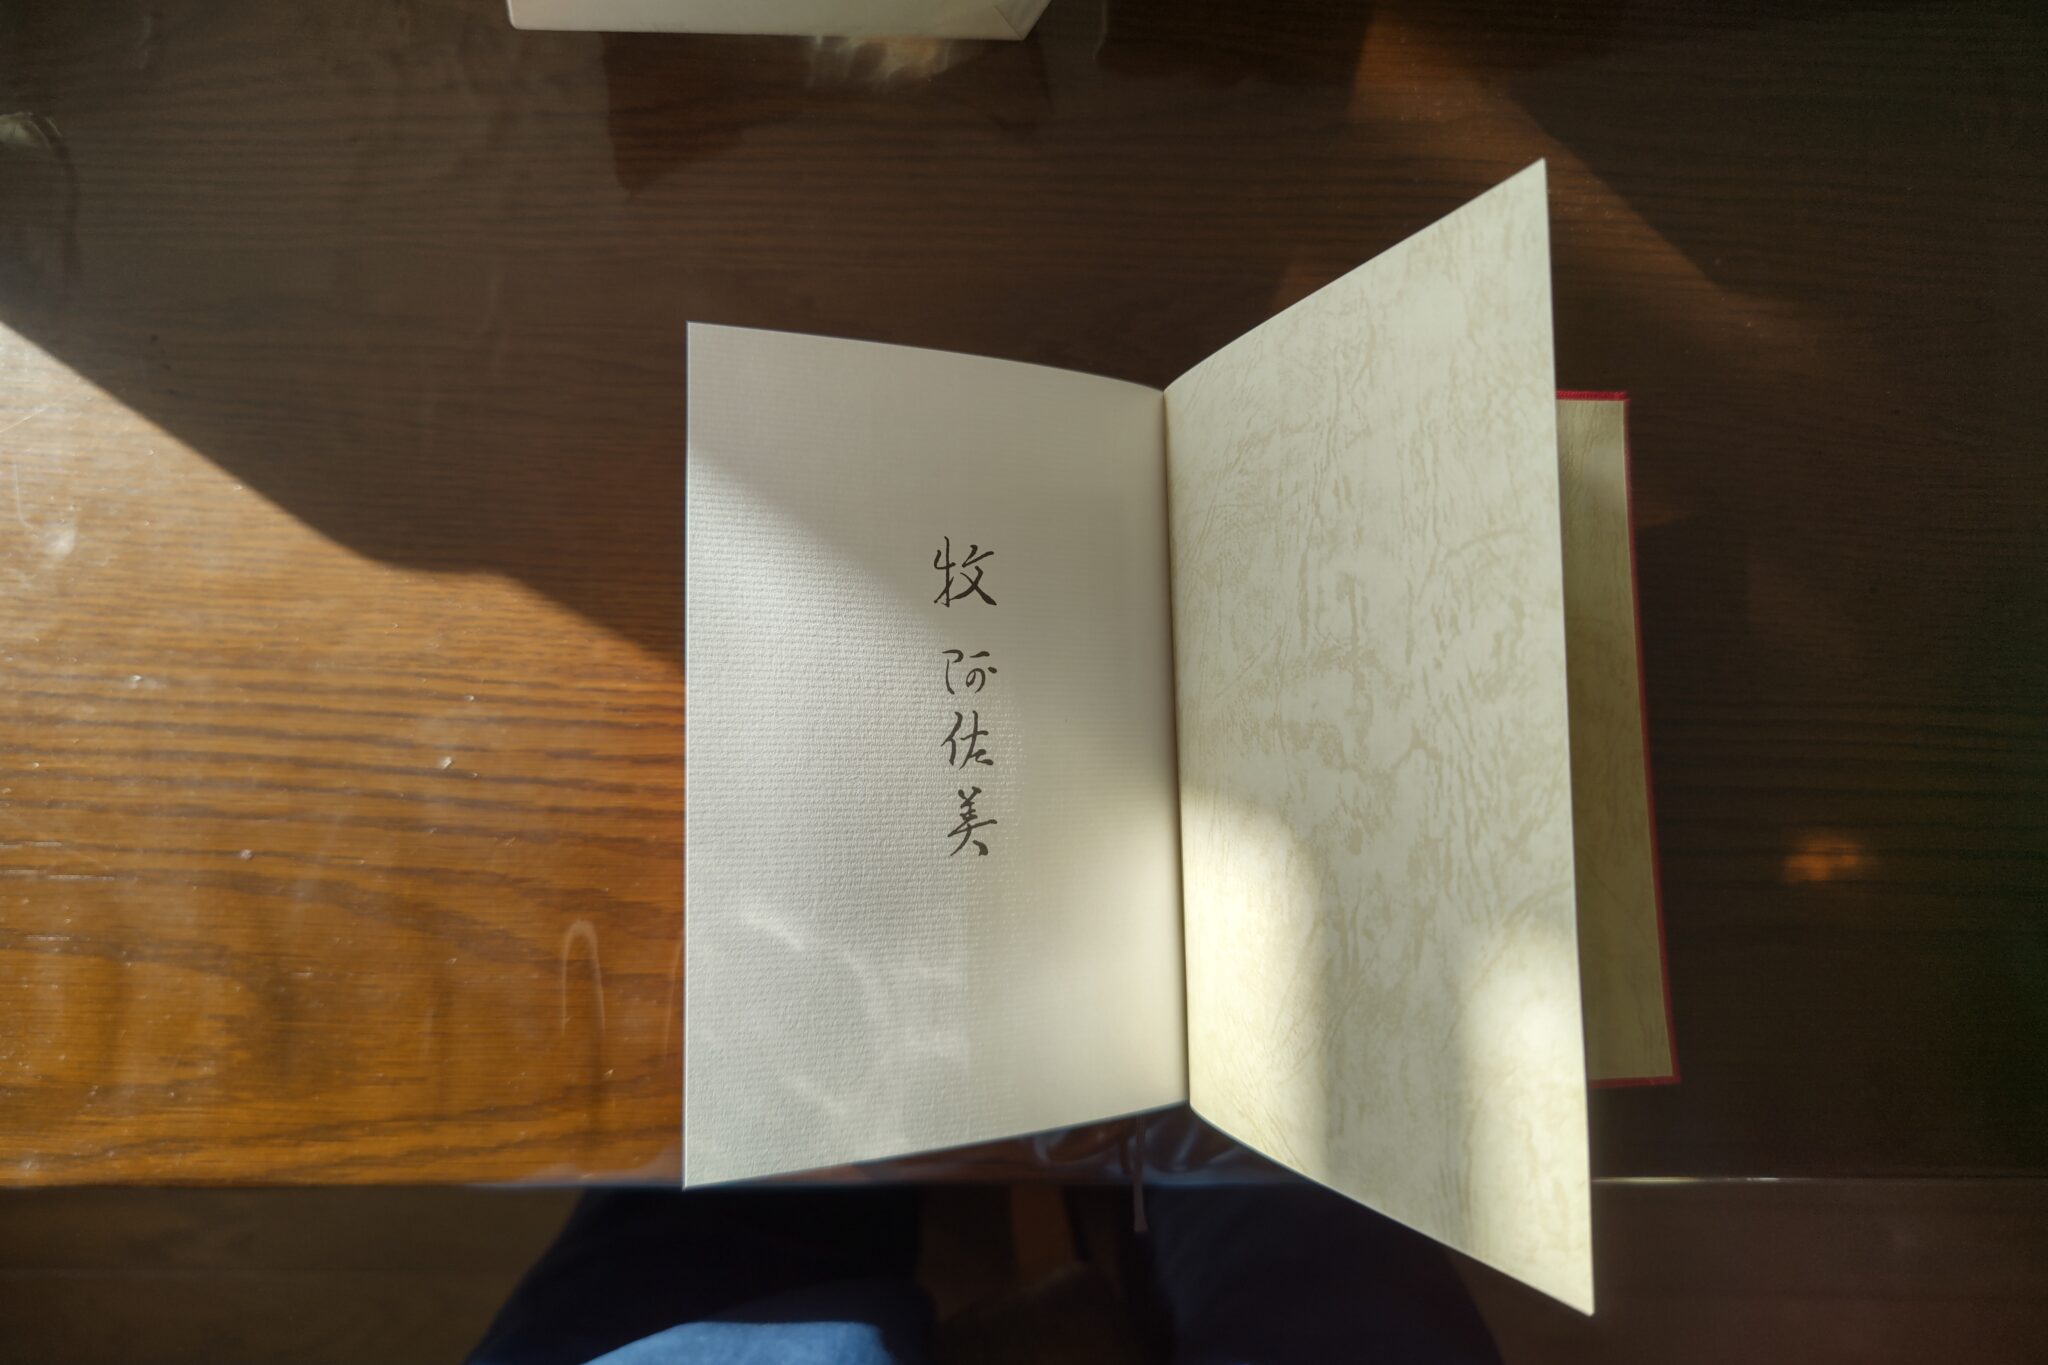 牧 阿佐美